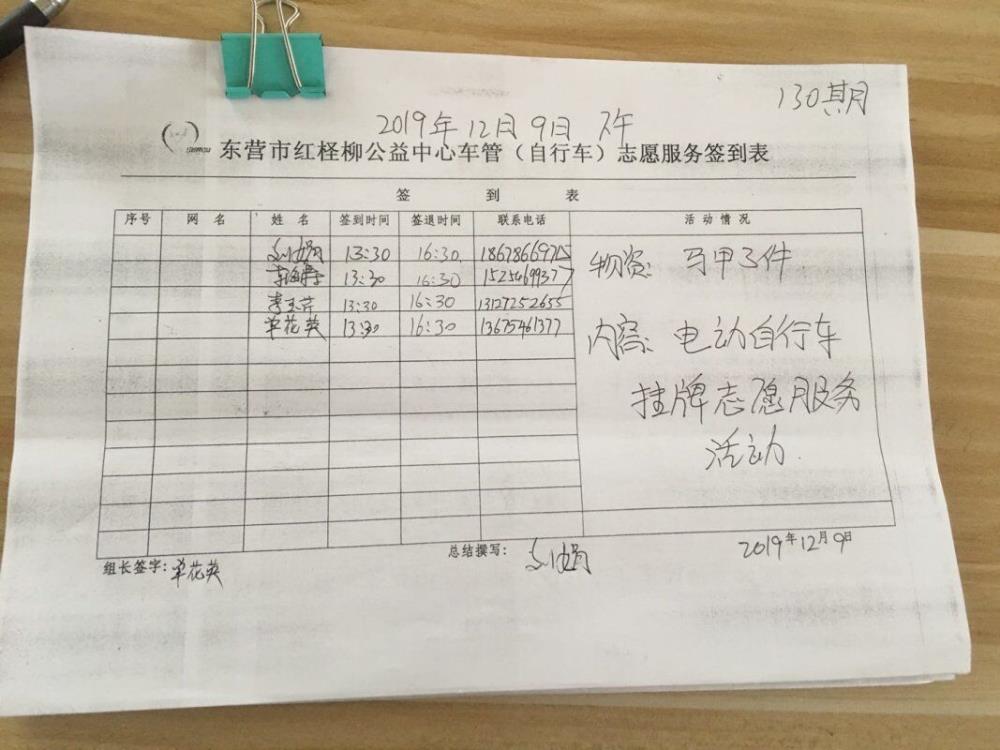 130期
2019年12月9日 下午
东营市红柽柳公益中心车管（自行车）志愿服务签到表
签 到 表
序号 网 名 姓 名 签到时间 签退时间 联系电话 活动情况
13:30 16:30 18678669715
13:30 16:30 15254699377
李玉芹 13:30 16:30 13127252655
单花英 13:30 16:30 13675461377
物资: 马甲3件
内容: 电动自行车
挂牌志愿服务
活动.
组长签字: 单花英
总结撰写:
2019年12月9日